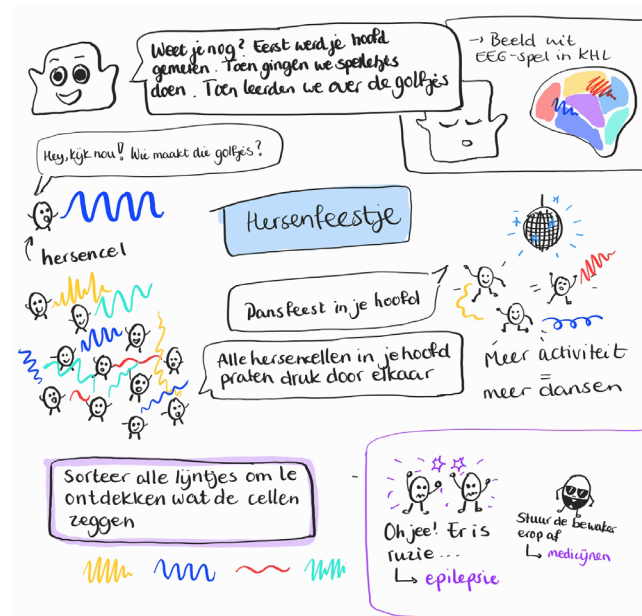 Weet je nog? Eerst werd je hoofd
gemeten. Toen gingen we spelletjes
doen. Toen leerden we over de golfjes
→ Beeld uit
EEG-spel in KHL
Hey, kijk nou! Wie maakt die golfjes?
hersencel
Hersenfeestje
Dansfeest in je hoofd
Alle hersencellen in je hoofd
praten druk door elkaar
=
Meer activiteit
=
meer dansen
Sorteer alle lijntjes om te
ontdekken wat de cellen
zeggen
Oh jee! Er is
ruzie...
↳ epilepsie
Stuur de bewaker
erop af
↳ medicijnen